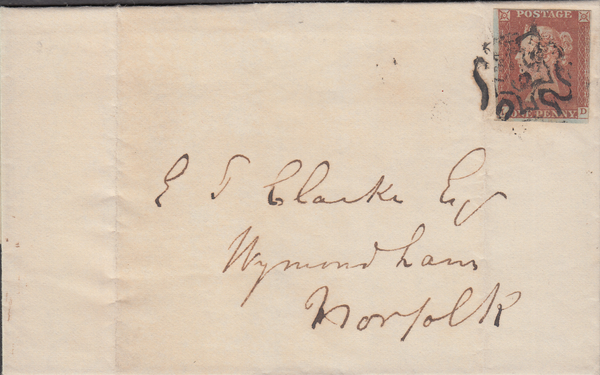 POSTAGE
ONE PENNY
D
E T Clarke Esq
Wymondham
Norfolk